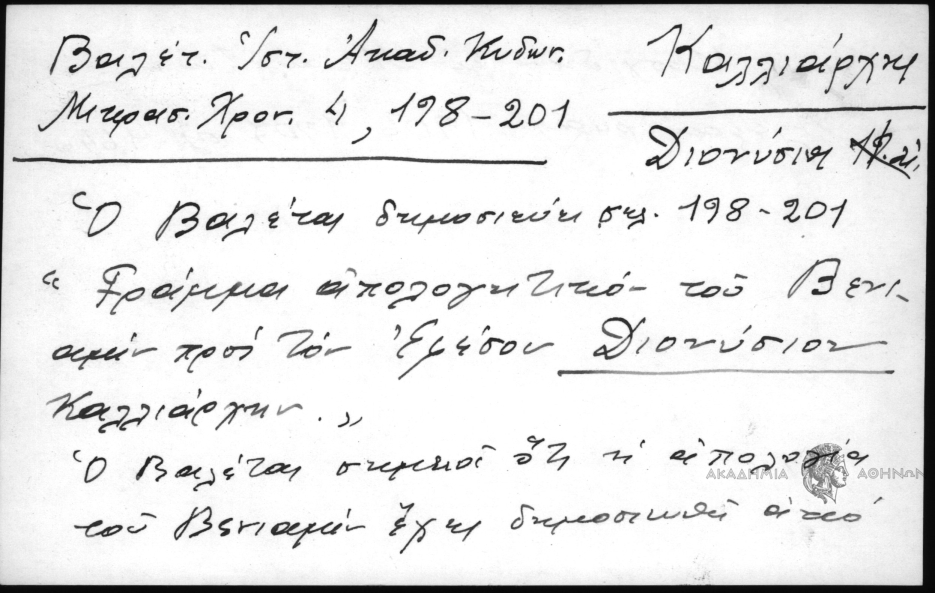 Βαλέτ. Ἱστ. Ἀκαδ. Κυδων.
Μικρασ. Χρον. 4, 198-201
Καλλιάρχης
Διονύσιος
Ὁ Βαλέτας δημοσιεύει σελ. 198-201
"Γράμμα ἀπολογητικὸν τοῦ Βενι-
αμὶν πρὸς τὸν Ἐφέσου Διονύσιον
Καλλιάρχην."
Ὁ Βαλέτας σημειοῖ ὅτι ἡ ἀπολογία
τοῦ Βενιαμὶν ἔχει δημοσιευθῆ ἀπὸ
ΑΚΑΔΗΜΙΑ ΑΘΗΝΩΝ